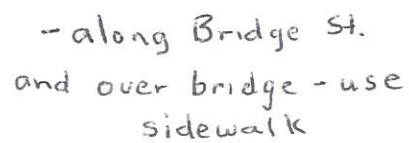 - along Bridge St.
and over bridge - use
sidewalk